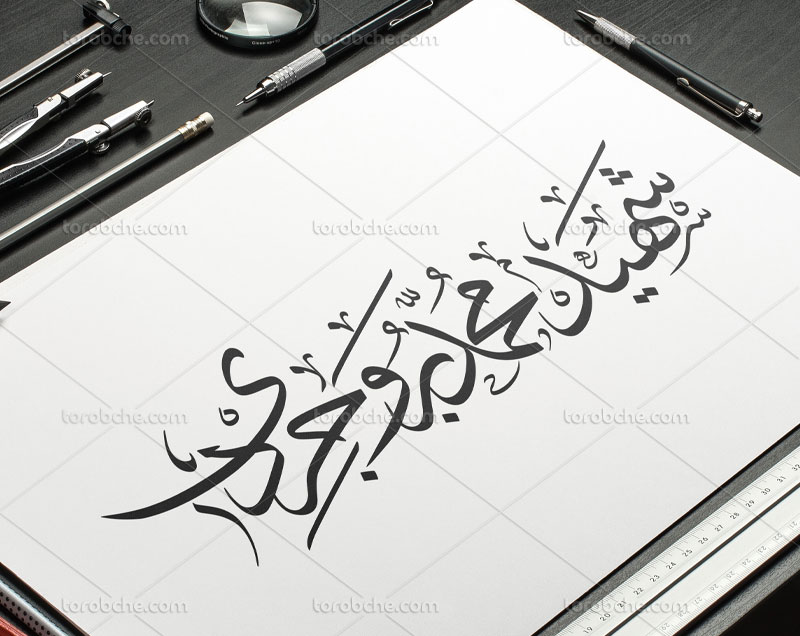 torobche.com torobche.com torobche.com
torobche.com torobche.com torobche.com
شهید محمد بروجردی
torobche.com torobche.com torobche.com
torobche.com torobche.com torobche.com
19 20 21 22 23 24 25 26 27 28 29 30 31 32